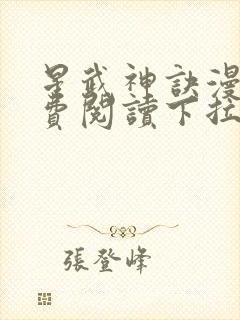 星武神訣漫
費閱讀下拉
張登峰